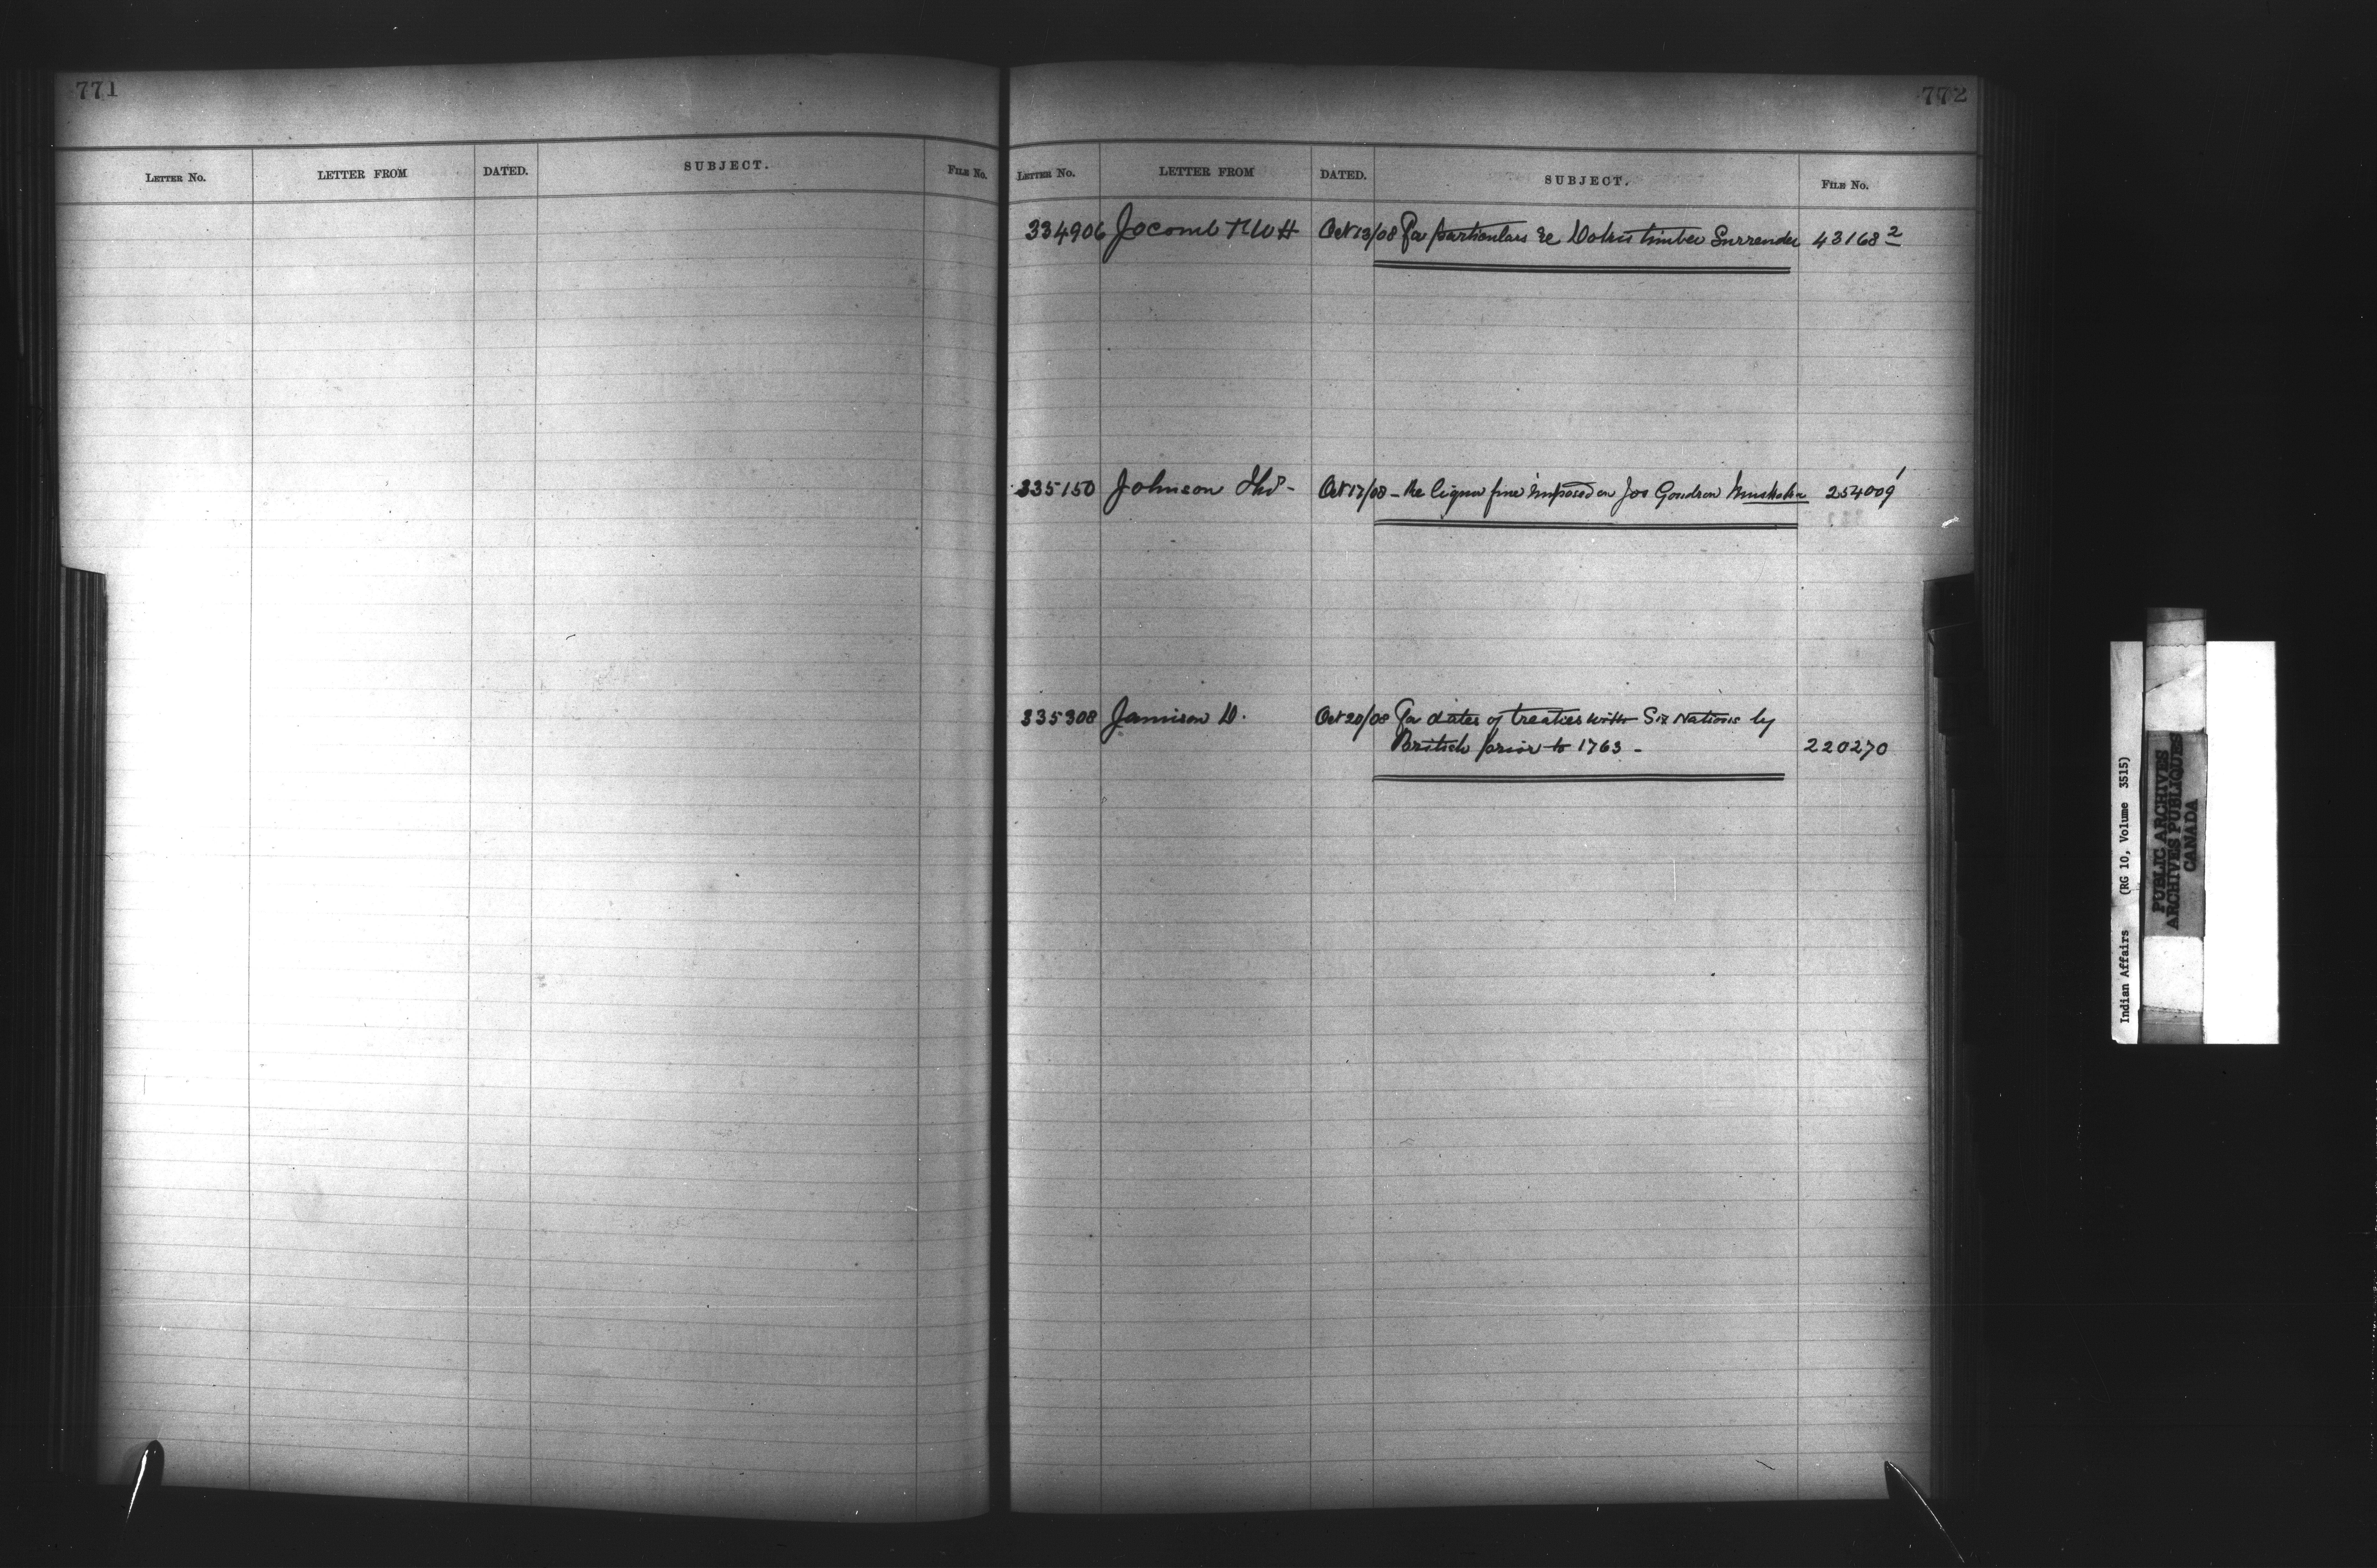 771
LETTER No. LETTER FROM DATED. SUBJECT. FILE No.
772
LETTER No. LETTER FROM DATED. SUBJECT. FILE No.
334906 Jocomb Oct 13/08 For particulars re Dokis timber Surrender 43168 2
335150 Johnson Thos - Oct 17/08 - Re liquor fine imposed on Jos Gendron Muskoka 254009 1
335308 Jamison D. Oct 20/08 For dates of treaties with Six Nations by
British prior to 1763 - 220270
Indian Affairs (RG 10, Volume 3515)
PUBLIC ARCHIVES
ARCHIVES PUBLIQUES
CANADA